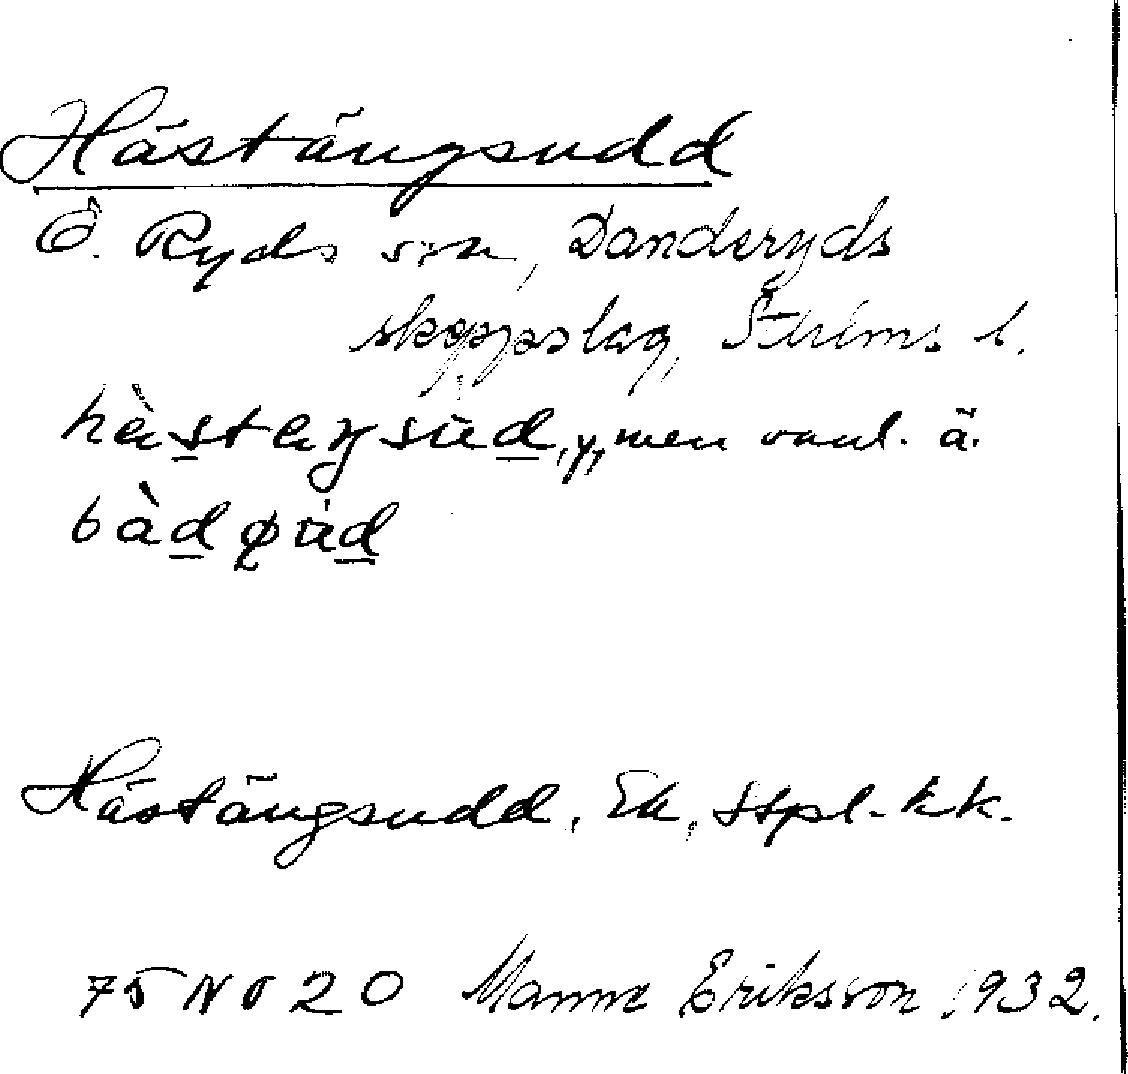 Hästängsudd
Ö. Ryds sn, Danderyds
skeppslag, Sthlms l.
men vanl. ä.
Hästängsudd, Ek, Stpl. kk.
75 NO 20 Manne Eriksson 1932.